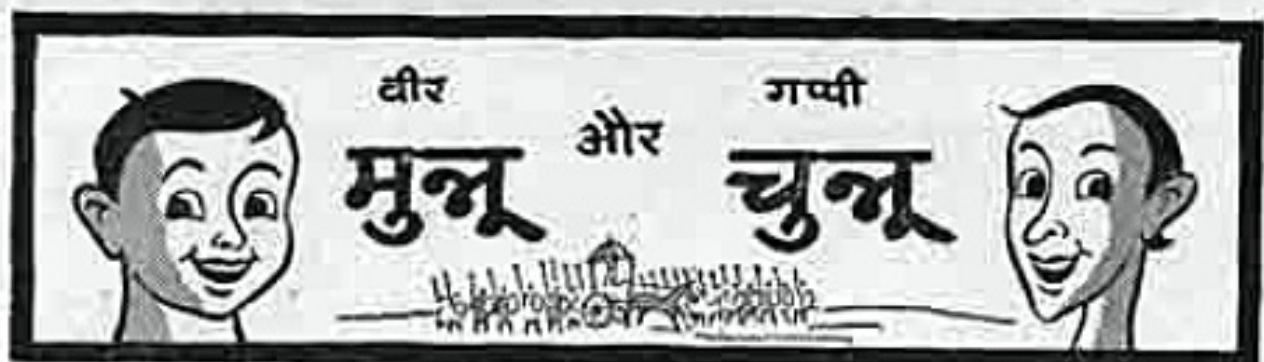 वीर
मुन्नू
और
गप्पी
चुन्नू